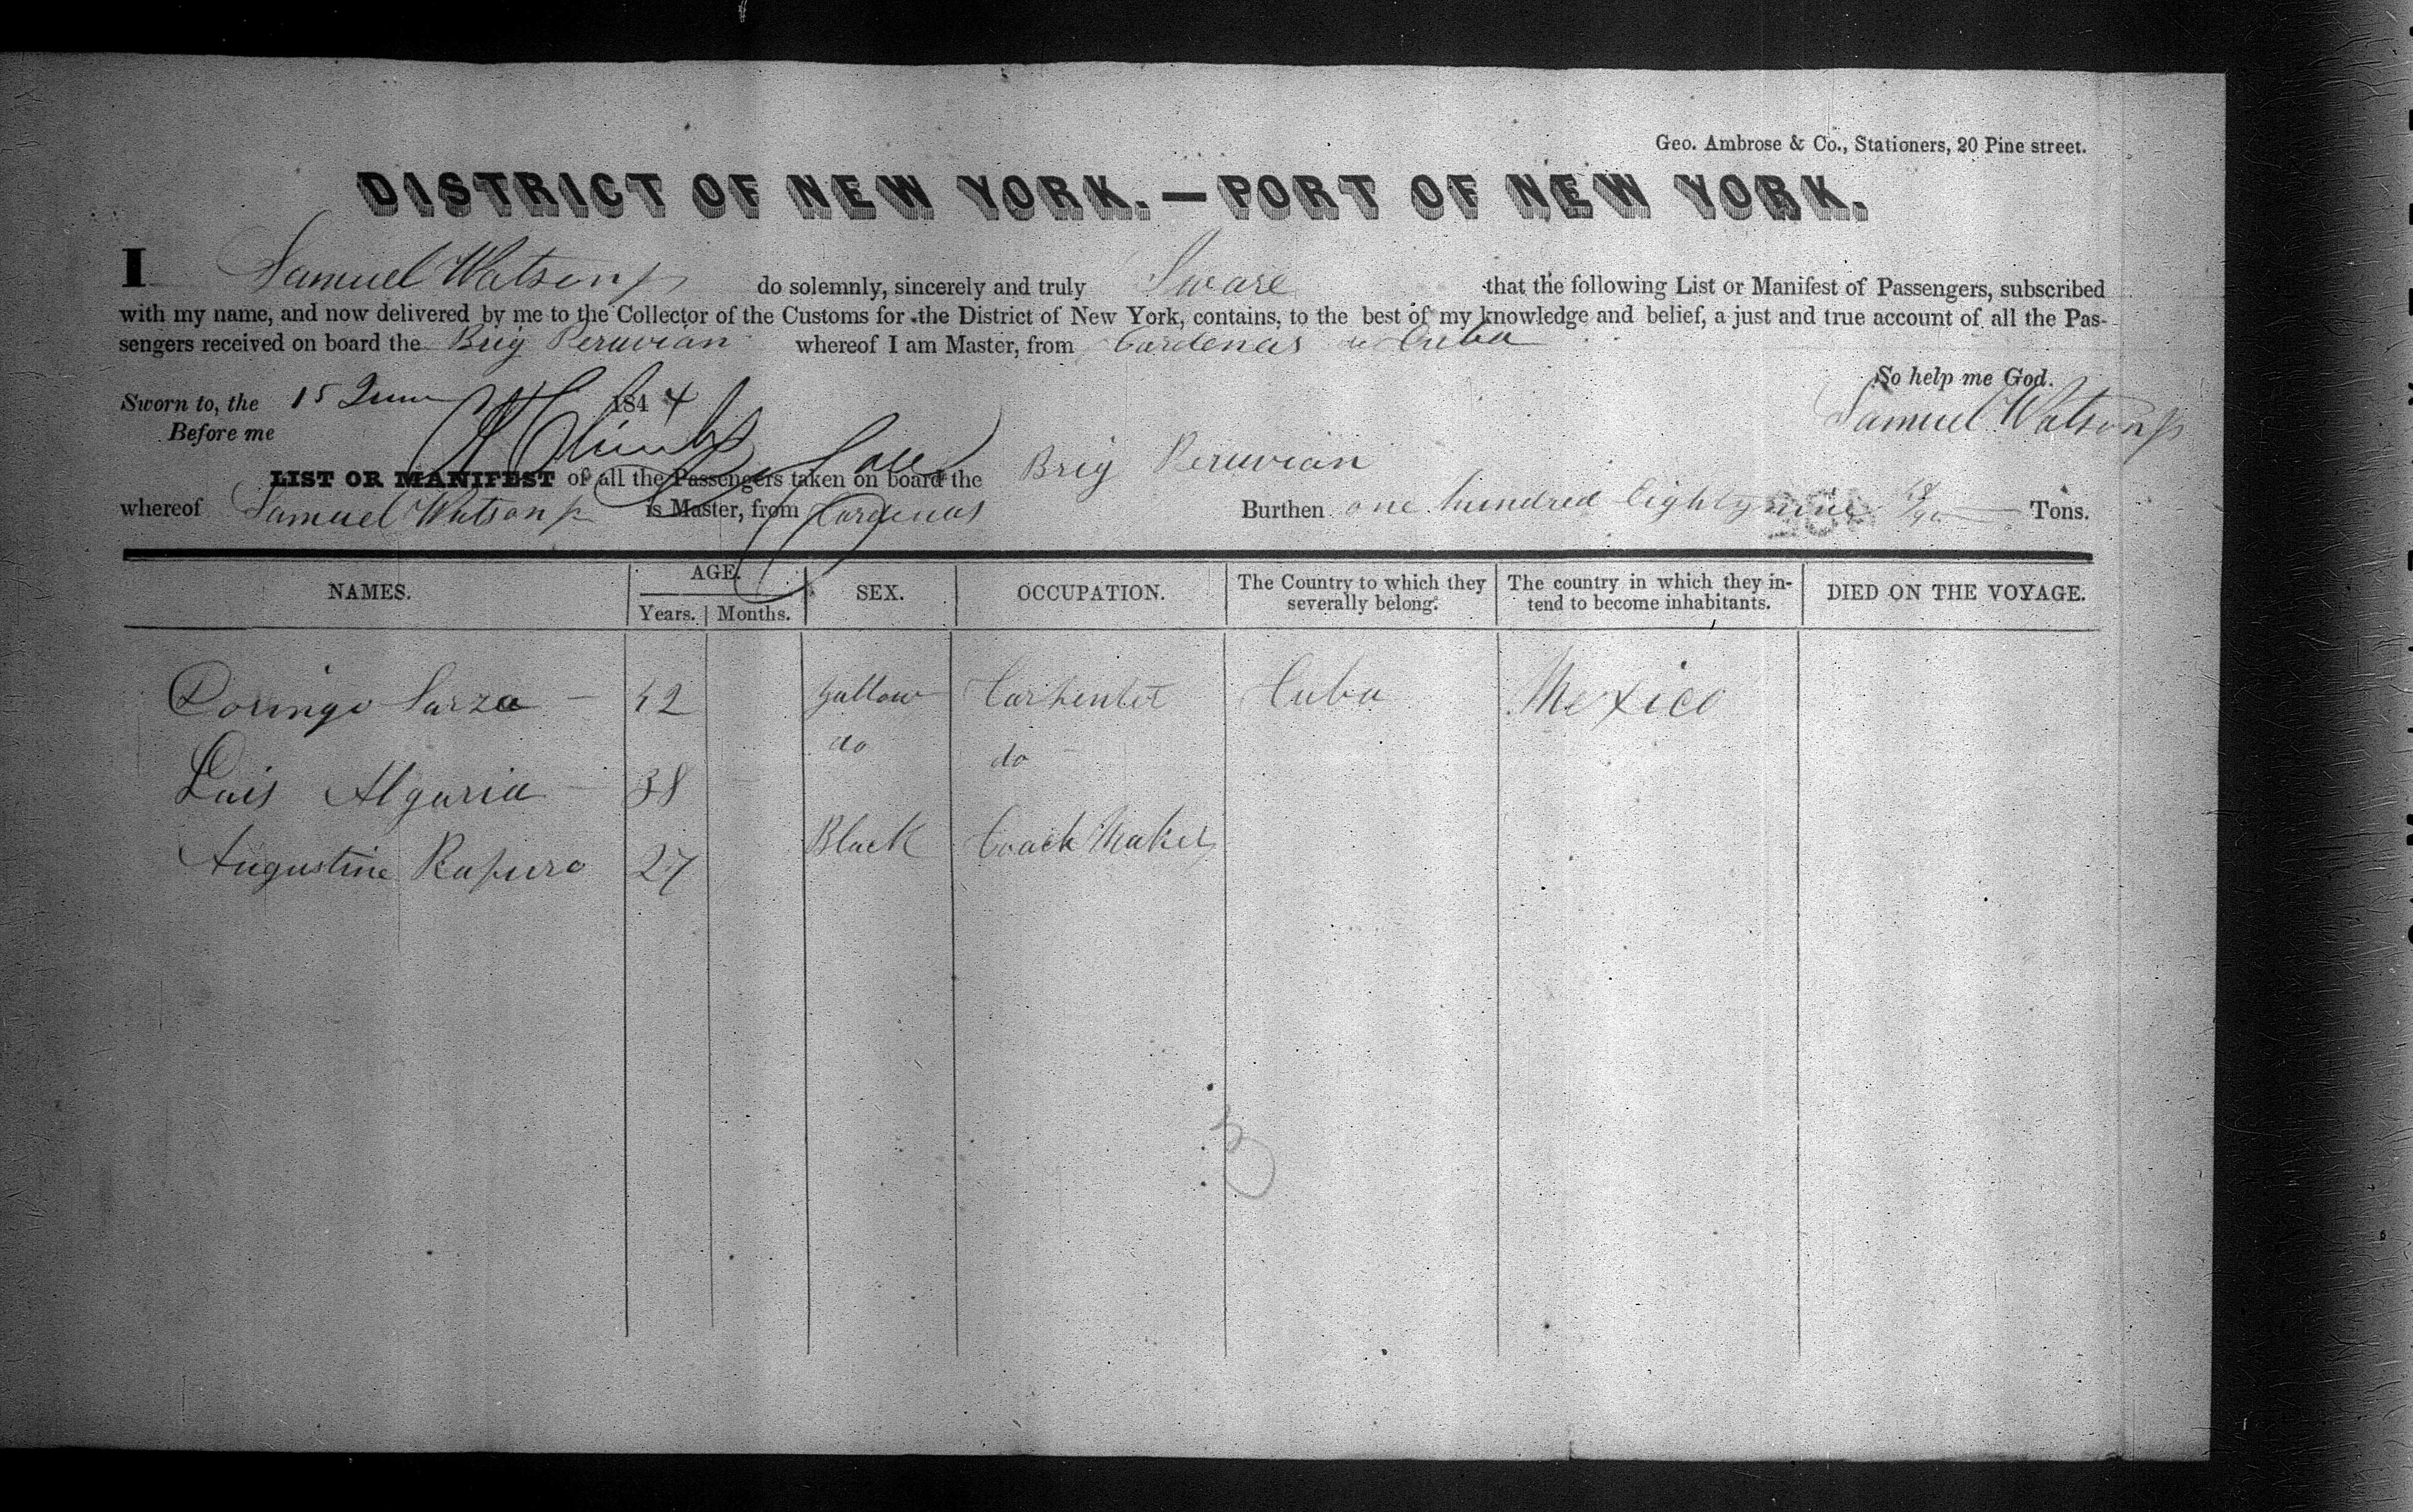 Geo. Ambrose & Co., Stationers, 20 Pine street.
DISTRICT OF NEW YORK.—PORT OF NEW YORK.
I Samuel Watson jr do solemnly, sincerely and truly Sware that the following List or Manifest of Passengers, subscribed
with my name, and now delivered by me to the Collector of the Customs for the District of New York, contains, to the best of my knowledge and belief, a just and true account of all the Pas-
sengers received on board the Brig Peruvian whereof I am Master, from Cardenas de Cuba
So help me God.
Sworn to, the 15 June 1844 Samuel Watson jr
Before me
LIST OR MANIFEST of all the Passengers taken on board the Brig Peruvian
whereof Samuel Watson jr is Master, from Cardenas Burthen one hundred Eighty nine Tons.
NAMES. AGE. Years. Months. SEX. OCCUPATION. The Country to which they severally belong. The country in which they intend to become inhabitants. DIED ON THE VOYAGE.
Domingo Sarza — 42 Yallow Carpenter Cuba Mexico
Luis Algaria — 38 do do
Augustine Rapuro 27 Black Coach Maker
3